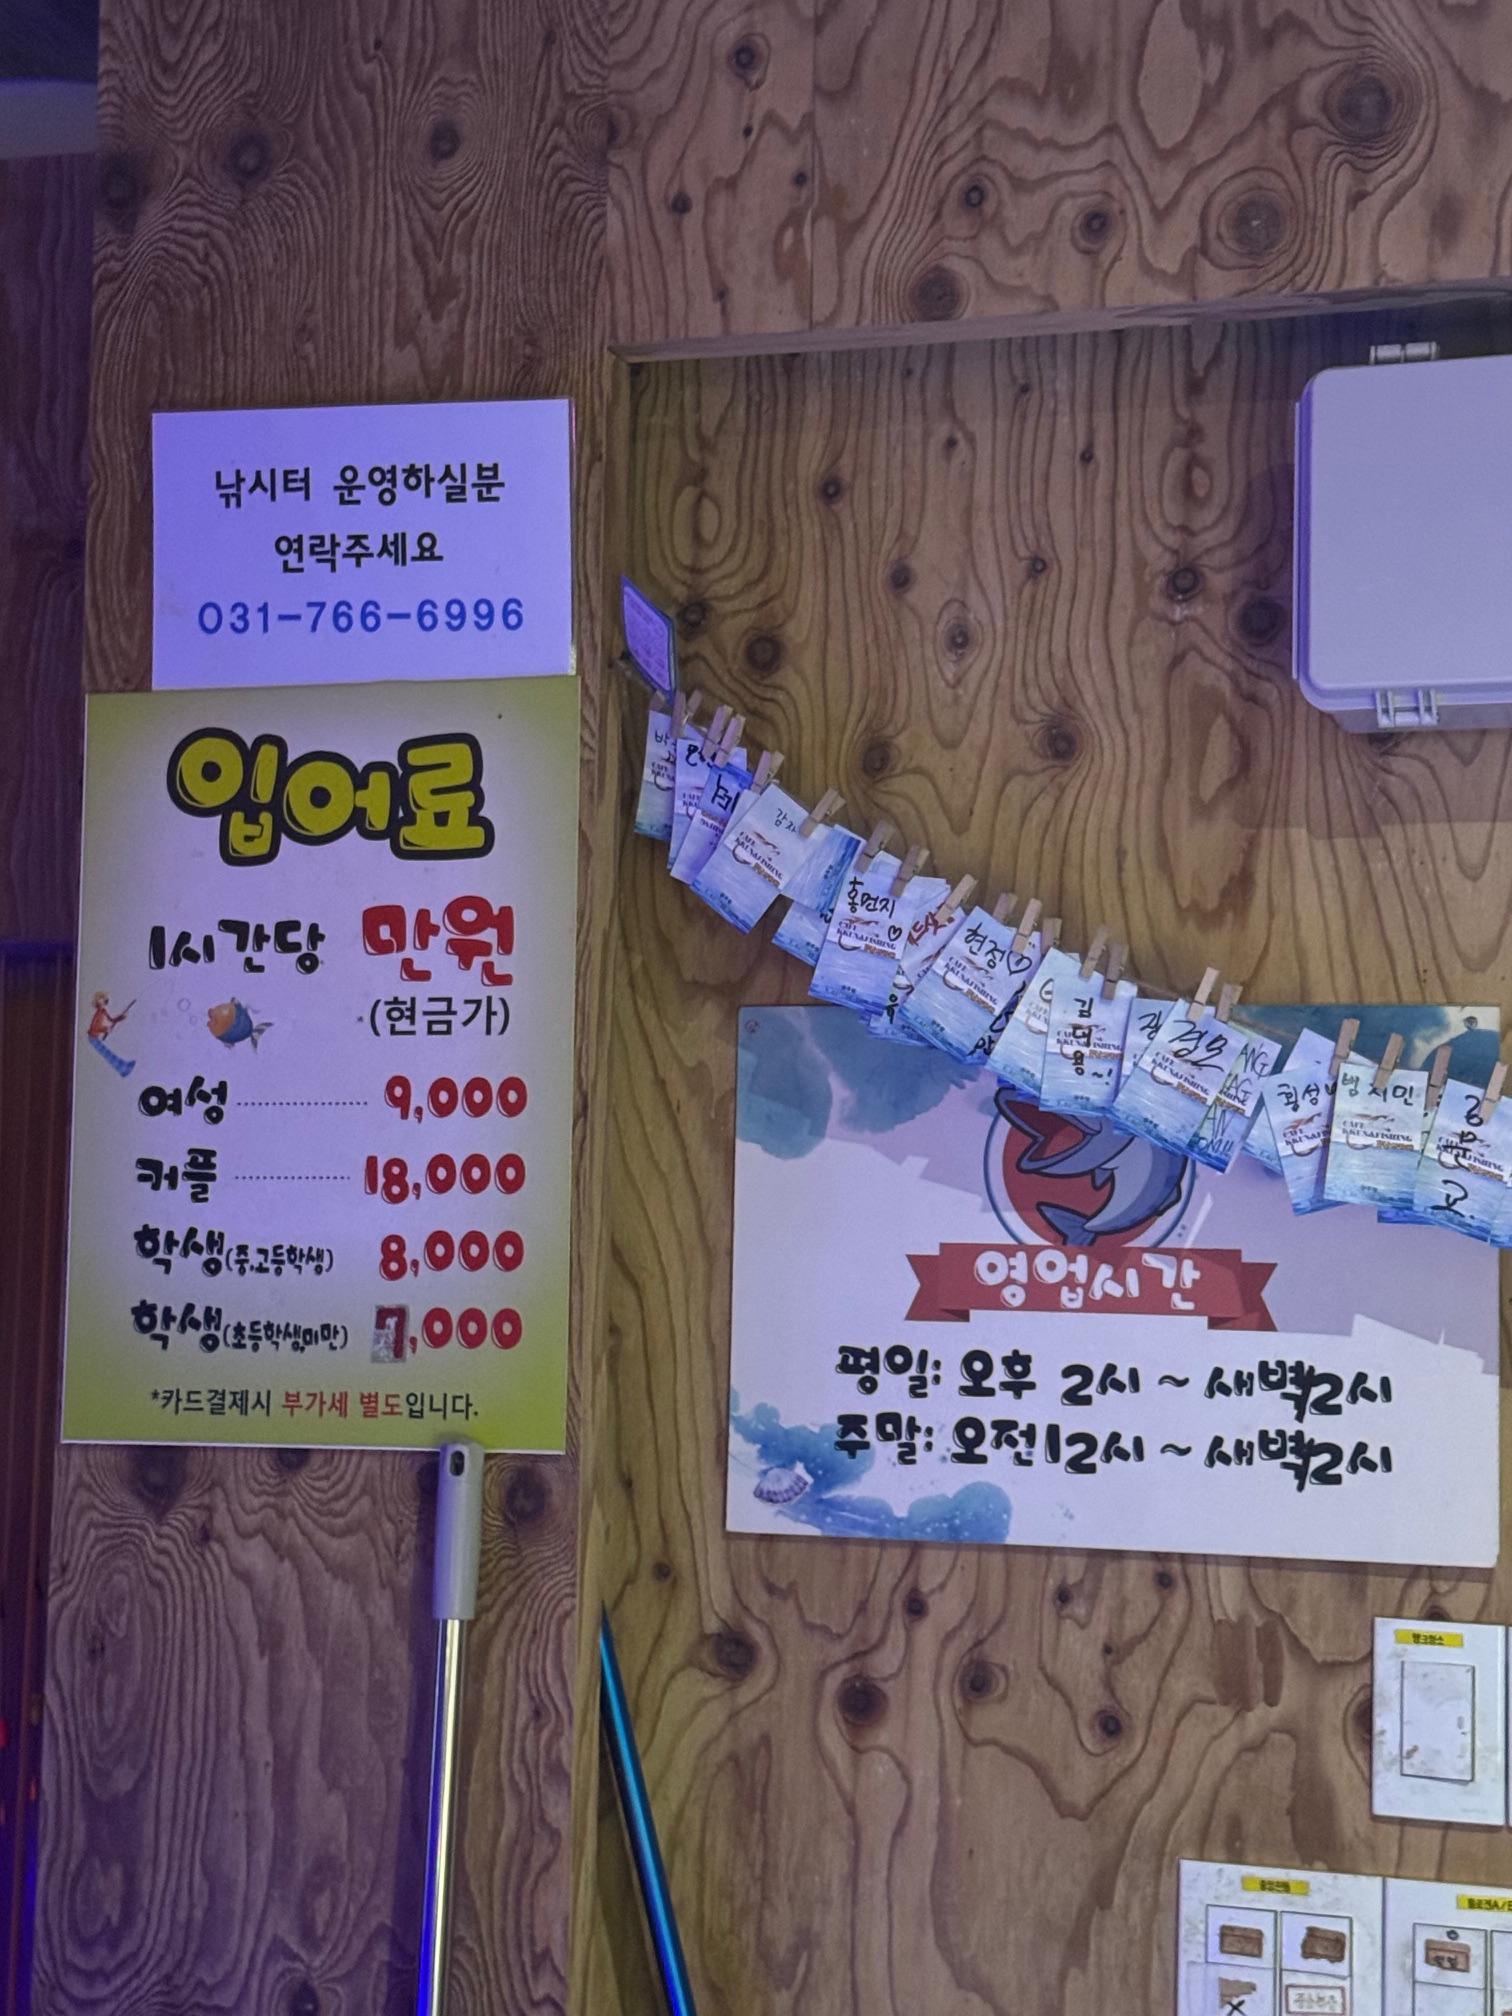 낚시터 운영하실분
연락주세요
031-766-6996
입어료
1시간당 만원
(현금가)
여성 9,000
커플 18,000
학생(중,고등학생) 8,000
학생(초등학생,미만) 7,000
*카드결제시 부가세 별도입니다.
감자
홍먼지
현정
김대용~!
경모
황성
뱅지민
CAFE
KKUN&FISHING
영업시간
평일: 오후 2시 ~ 새벽2시
주말: 오전12시 ~ 새벽2시
탱크청소